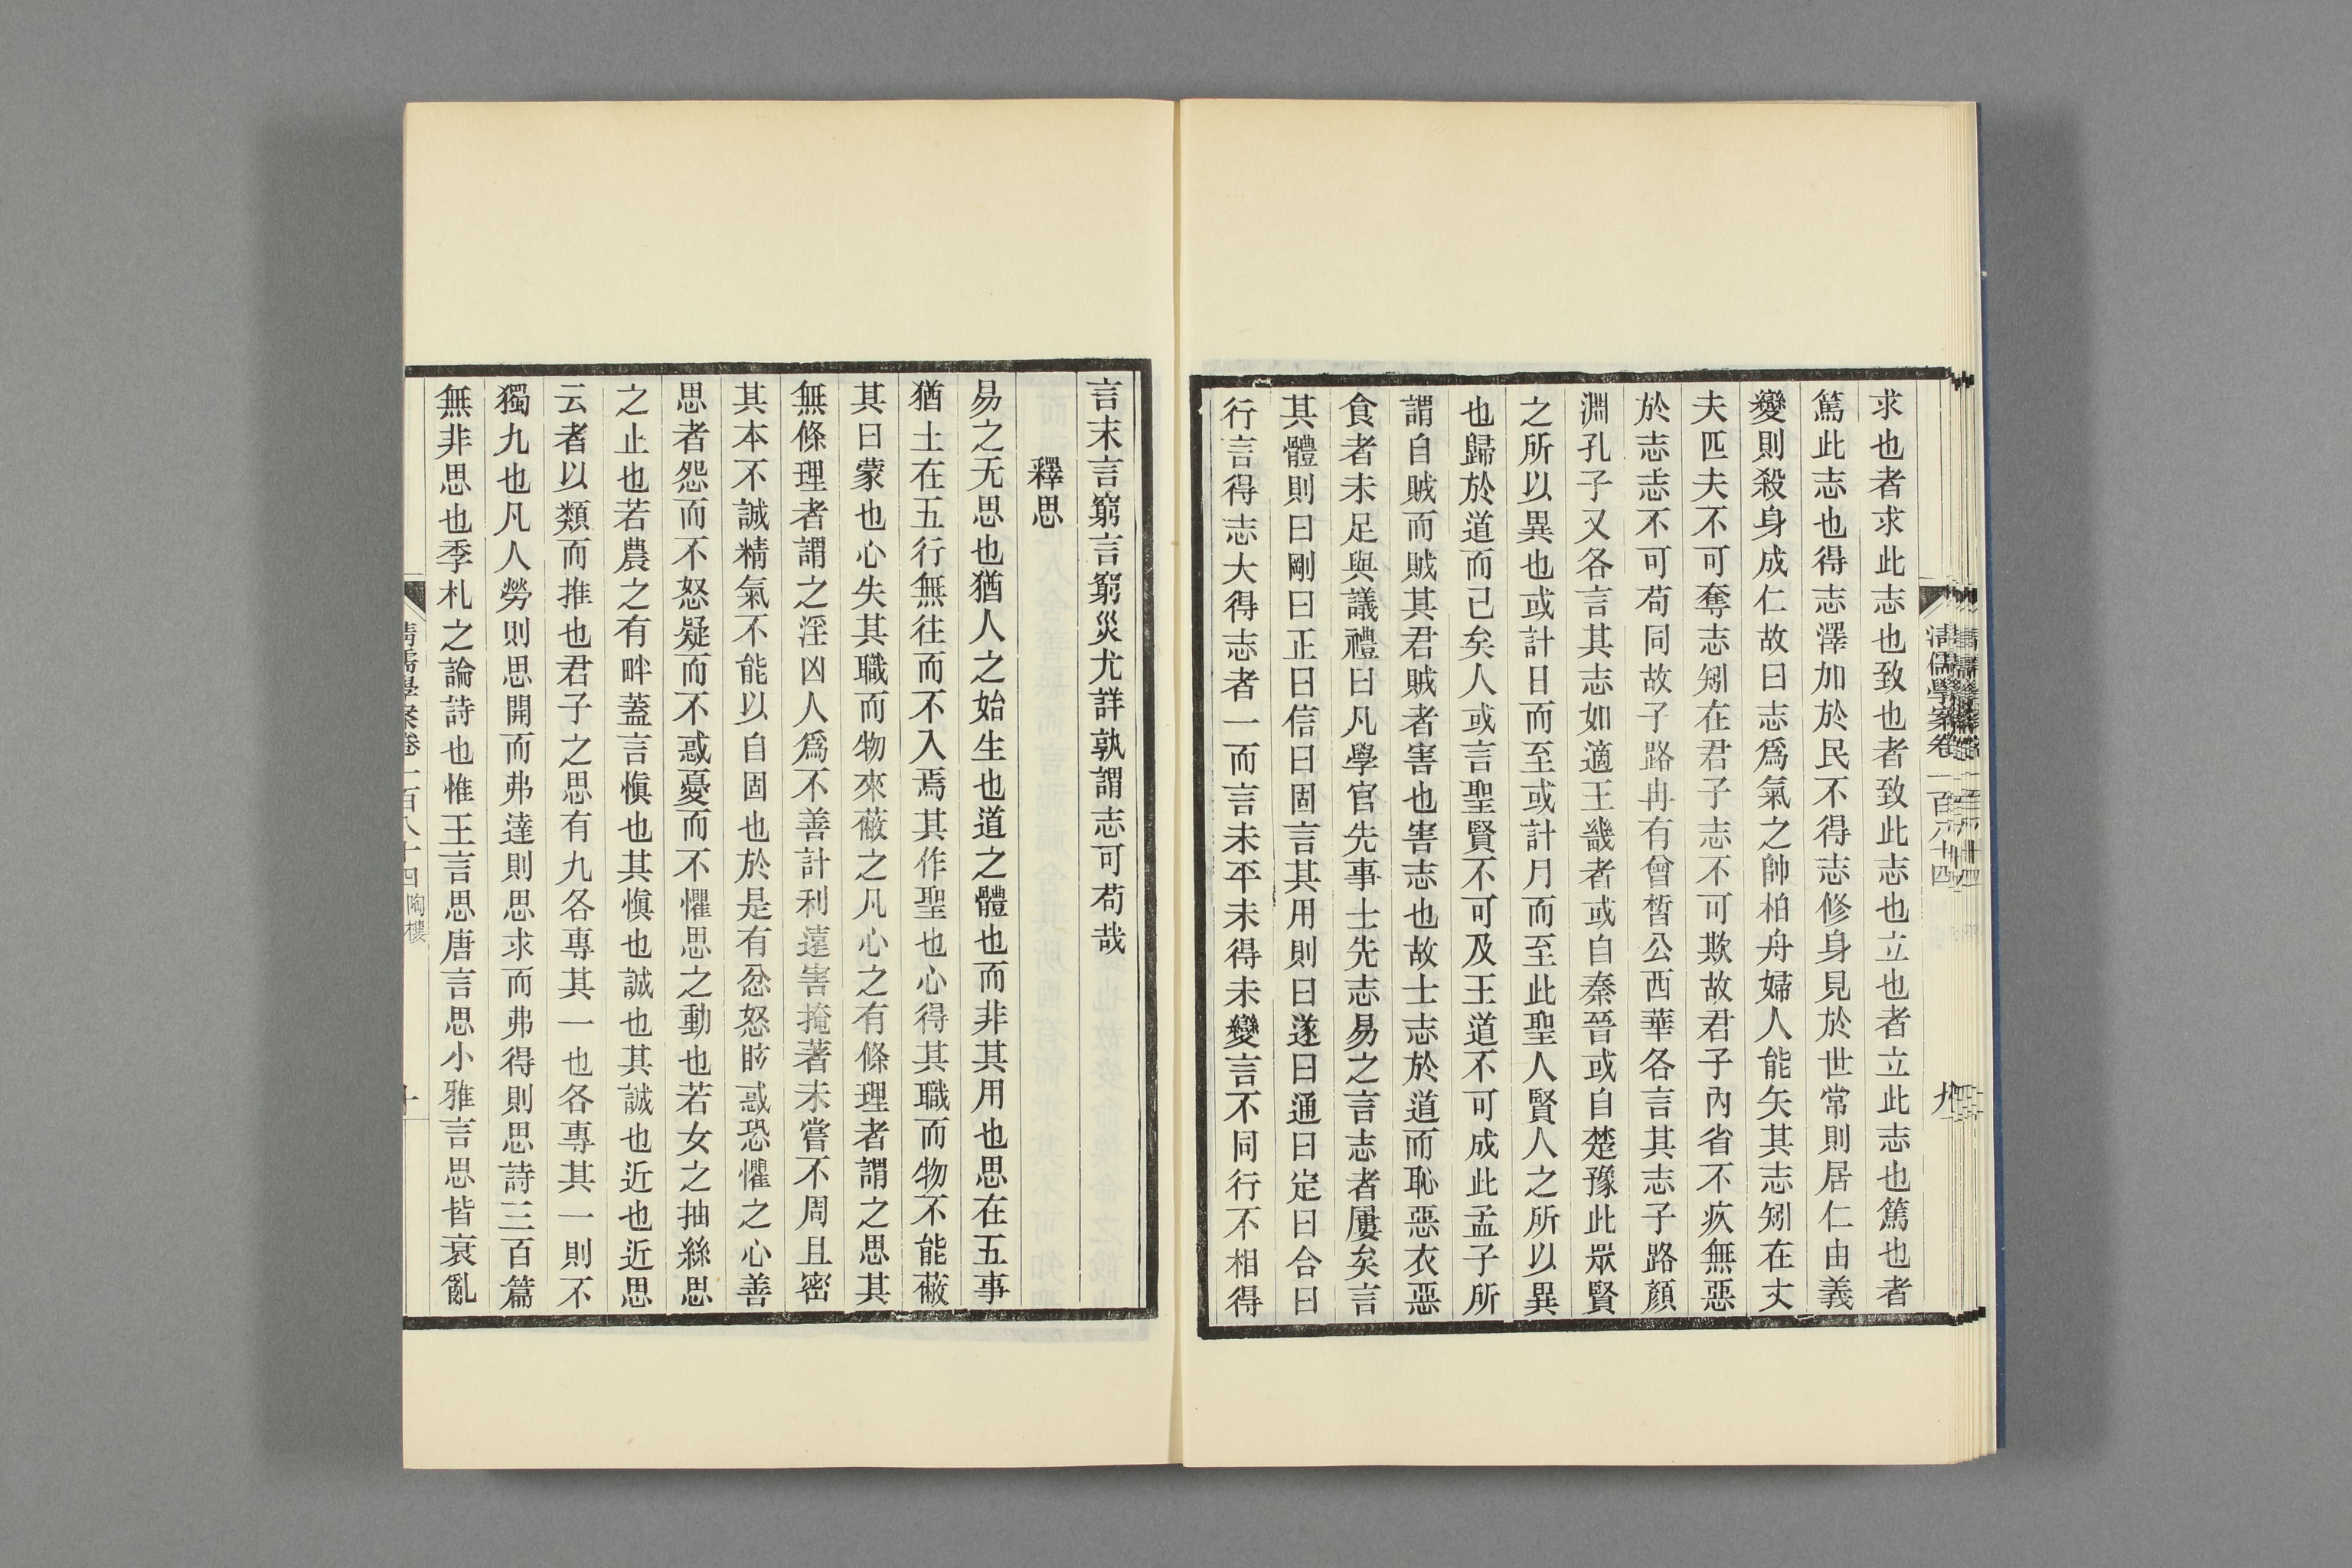 求也者求此志也致也者致此志也立也者立此志也篤也者
篤此志也得志澤加於民不得志修身見於世常則居仁由義
變則殺身成仁故曰志爲氣之帥柏舟婦人能矢其志矧在丈
夫匹夫不可奪志矧在君子志不可欺故君子內省不疚無惡
於志志不可苟同故子路冉有曾皙公西華各言其志子路顏
淵孔子又各言其志如適王畿者或自秦晉或自楚豫此眾賢
之所以異也或計日而至或計月而至此聖人賢人之所以異
也歸於道而已矣人或言聖賢不可及王道不可成此孟子所
謂自賊而賊其君賊者害也害志也故士志於道而恥惡衣惡
食者未足與議禮曰凡學官先事士先志易之言志者屢矣言
其體則曰剛曰正曰信曰固言其用則曰遂曰通曰定曰合曰
行言得志大得志者一而言未平未得未變言不同行不相得
清儒學案卷一百八十四
九
言末言窮言窮災尤詳孰謂志可苟哉
釋思
易之无思也猶人之始生也道之體也而非其用也思在五事
猶土在五行無往而不入焉其作聖也心得其職而物不能蔽
其曰蒙也心失其職而物來蔽之凡心之有條理者謂之思其
無條理者謂之淫凶人爲不善計利遠害掩著未嘗不周且密
其本不誠精氣不能以自固也於是有忿怒眩惑恐懼之心善
思者怨而不怒疑而不惑憂而不懼思之動也若女之抽絲思
之止也若農之有畔蓋言愼也其愼也誠也其誠也近也近思
云者以類而推也君子之思有九各專其一也各專其一則不
獨九也凡人勞則思開而弗達則思求而弗得則思詩三百篇
無非思也季札之論詩也惟王言思唐言思小雅言思皆衰亂
清儒學案卷一百八十四 陶樓
十